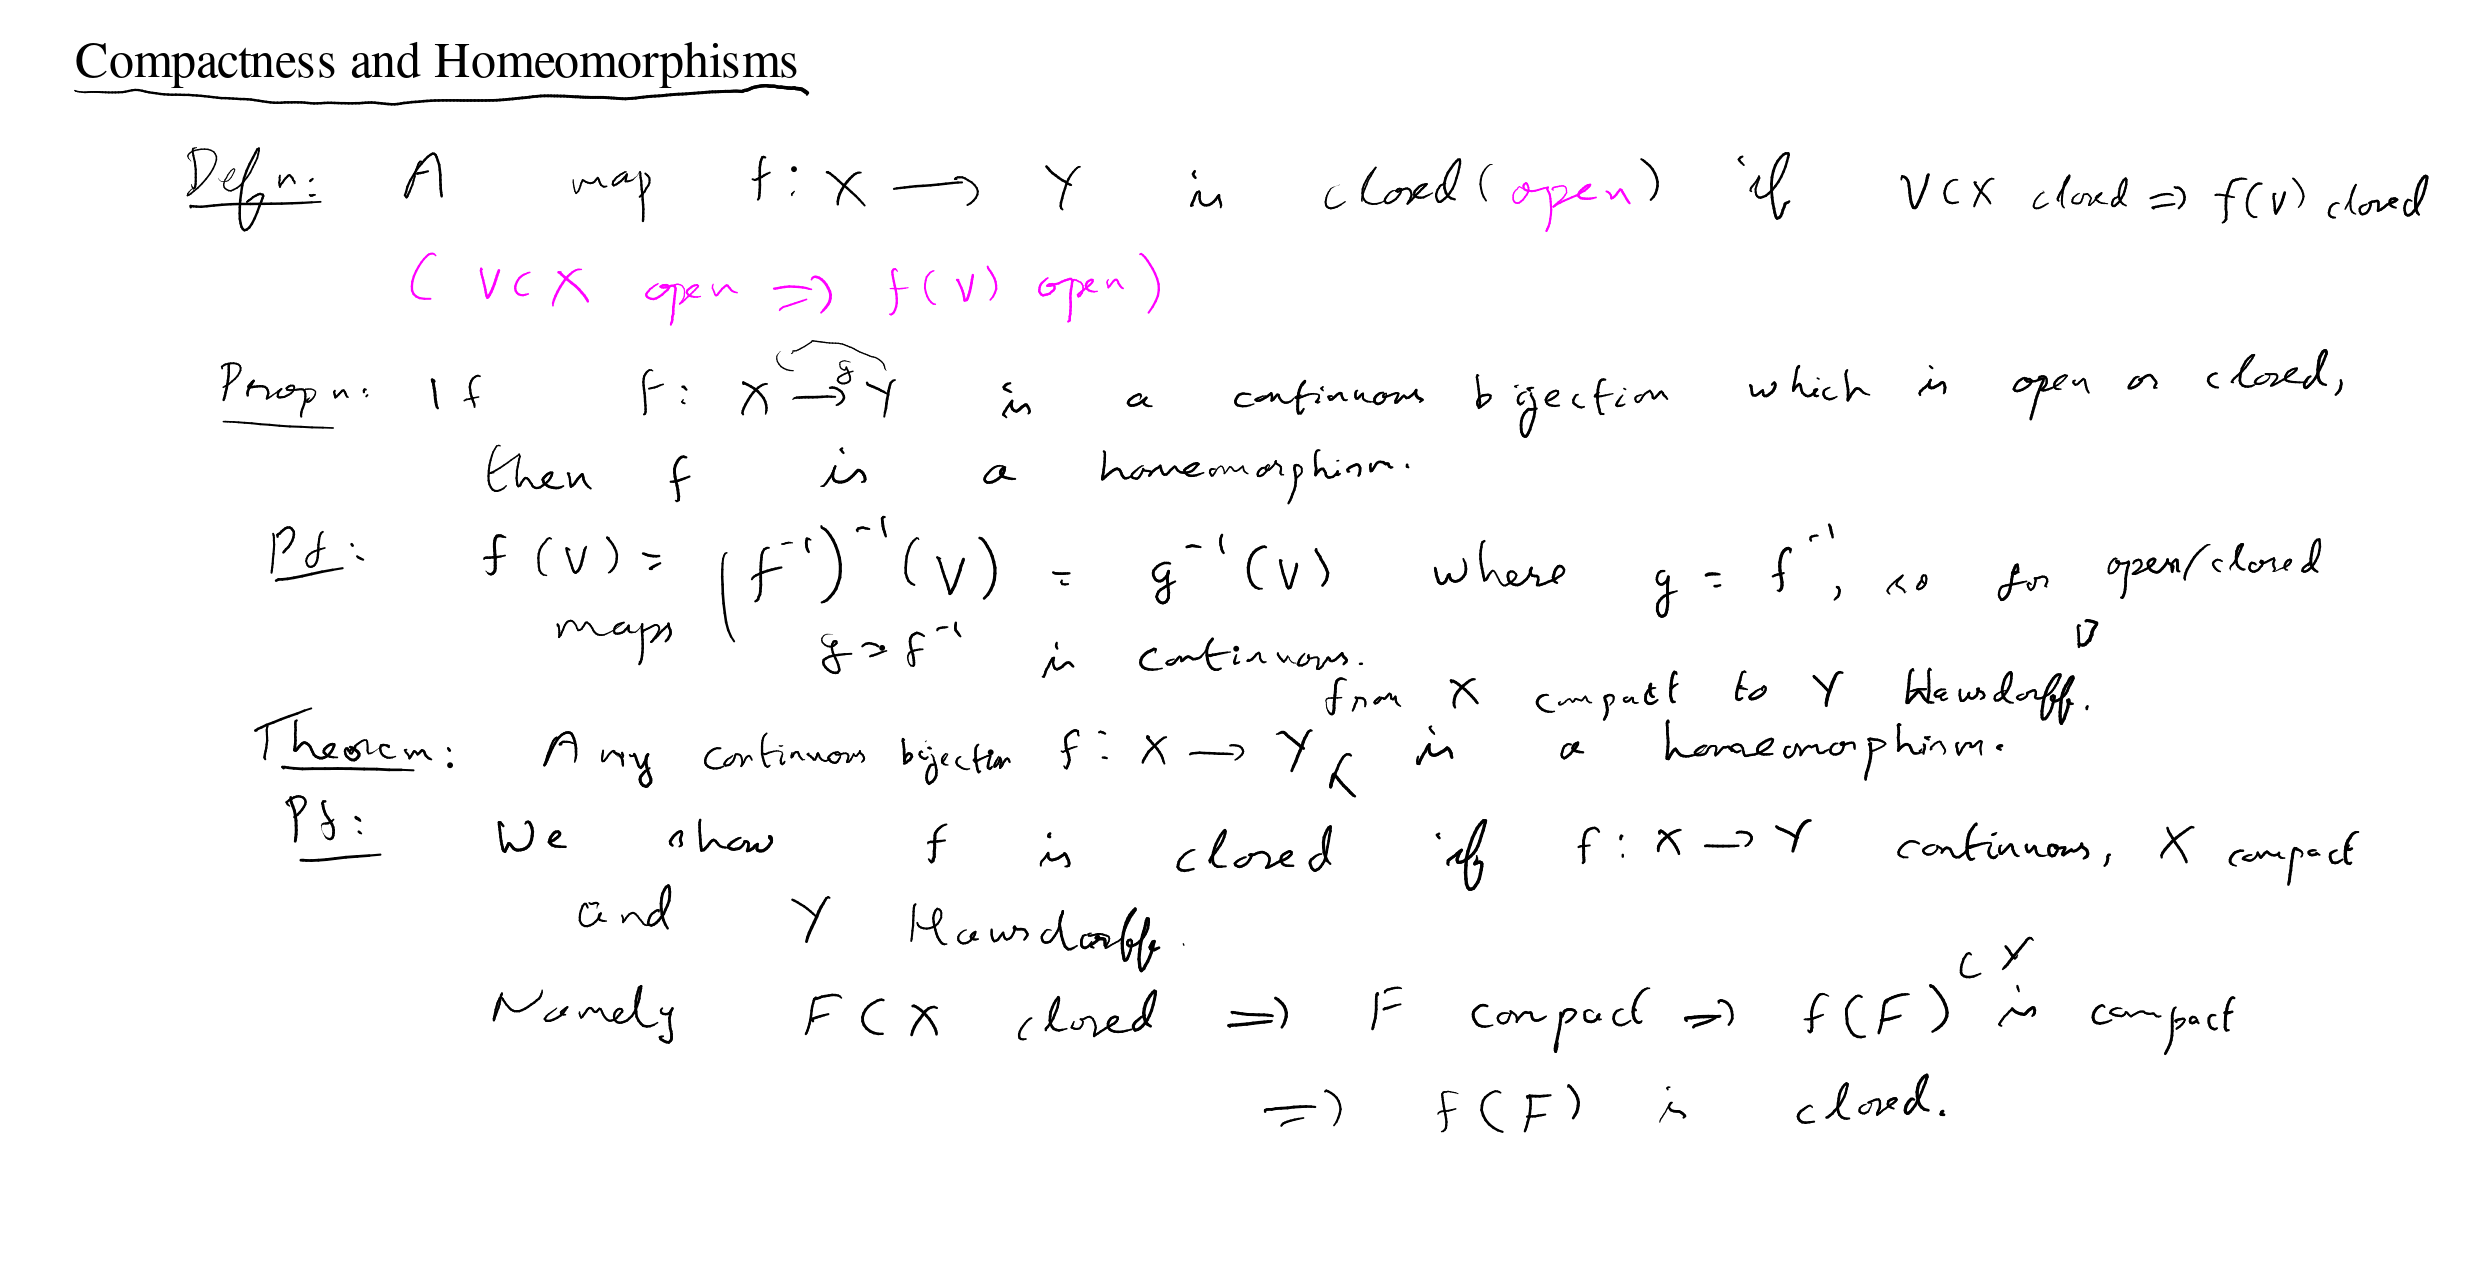 Compactness and Homeomorphisms
Defn: A map f: X → Y is closed (open) if V⊂X closed ⇒ f(V) closed
(V⊂X open ⇒ f(V) open)
Propn: If f: X → Y g is a continuous bijection which is open or closed,
then f is a homeomorphism.
Pf: f(V) = (f⁻¹)⁻¹(V) = g⁻¹(V) where g = f⁻¹, so for open/closed
maps g = f⁻¹ is continuous. □
from X compact to Y Hausdorff.
Theorem: Any continuous bijection f: X → Y is a homeomorphism.
Pf: We show f is closed if f: X → Y continuous, X compact
and Y Hausdorff.
Namely F⊂X closed ⇒ F compact ⇒ f(F) ⊂ Y is compact
⇒ f(F) is closed.